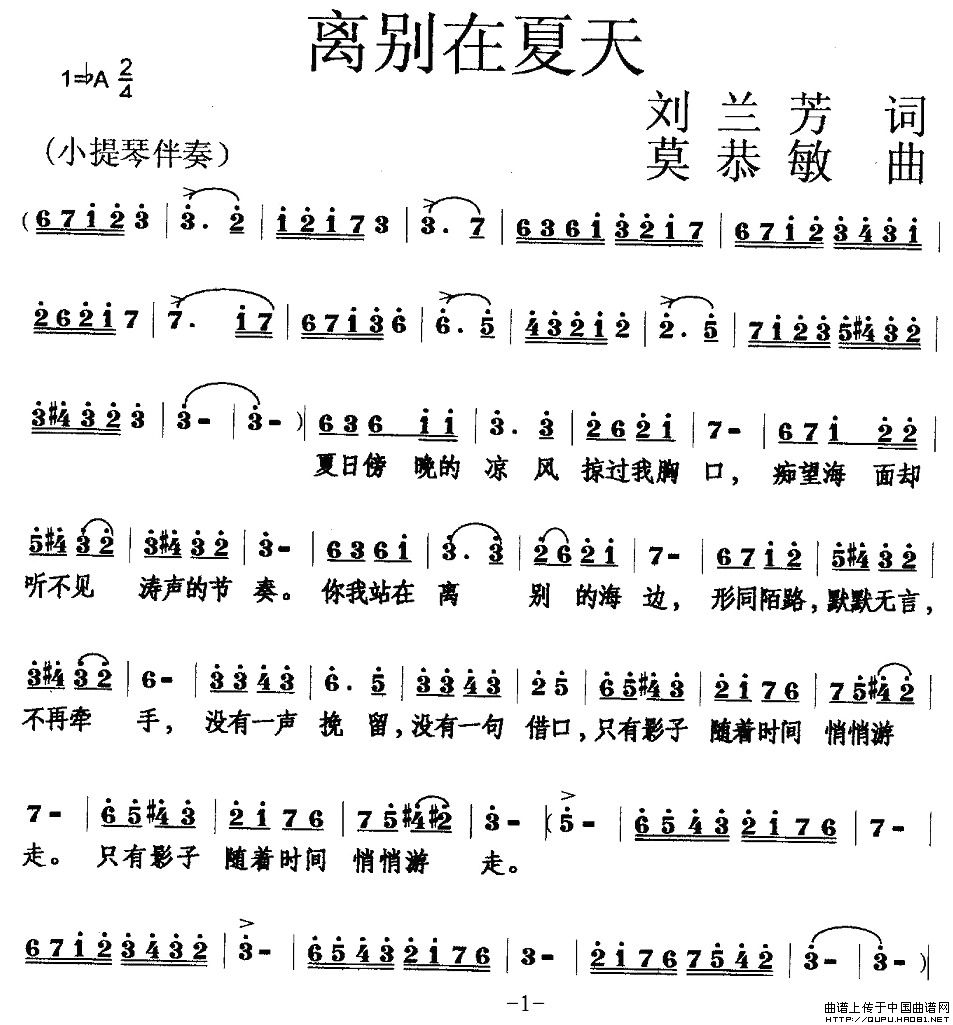 离别在夏天
1=♭A 2/4
刘兰芳 词
(小提琴伴奏)
莫恭敏 曲
(671̇2̇3̇ | 3̇. 2̇ | 1̇2̇1̇73 | 3. 7 | 6361̇ 3̇2̇1̇7 | 671̇2̇ 3̇4̇3̇1̇ |
2̇62̇1̇7 | 7. 1̇7 | 671̇3̇6̇ | 6̇. 5̇ | 4̇3̇2̇1̇2̇ | 2̇. 5̇ | 71̇2̇3̇ 5̇#4̇3̇2̇ |
3̇#4̇3̇2̇3̇ | 3̇- | 3̇- ) | 636 1̇1̇ | 3̇. 3̇ | 2̇62̇1̇ | 7- | 671̇ 2̇2̇ |
夏日傍 晚的 凉 风 掠过我胸 口, 痴望海 面却
5̇#4̇ 3̇2̇ | 3̇#4̇3̇2̇ | 3̇- | 6361̇ | 3̇. 3̇ | 2̇62̇1̇ | 7- | 671̇2̇ | 5̇#4̇3̇2̇ |
听不见 涛声的节 奏。 你我站在 离 别 的海 边, 形同陌路, 默默无言,
3̇#4̇ 3̇2̇ | 6- | 3̇3̇4̇3̇ | 6̇. 5̇ | 3̇3̇4̇3̇ | 2̇5̇ | 6̇5̇#4̇3̇ | 2̇1̇76 | 75̇#4̇2̇ |
不再牵 手, 没有一声 挽 留, 没有一句 借口, 只有影子 随着时间 悄悄游
7- | 6̇5̇#4̇3̇ | 2̇1̇76 | 75̇#4̇#2̇ | 3̇- | (5̇- | 6̇5̇4̇3̇ 2̇1̇76 | 7- |
走。 只有影子 随着时间 悄悄游 走。
671̇2̇ 3̇4̇3̇2̇ | 3̇- | 6̇5̇4̇3̇ 2̇1̇76 | 3- | 2̇1̇76 7542̇ | 3̇- | 3̇- )|
-1-
曲谱上传于中国曲谱网
HTTP://QUPU.HAO81.NET